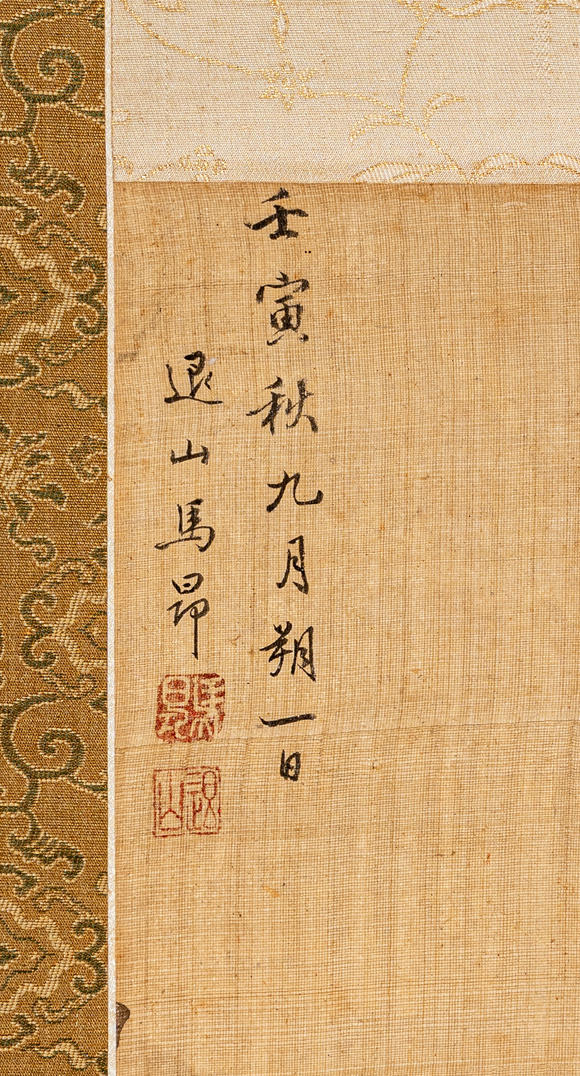 壬寅秋九月朔一日
退山馬昂
馬昂
退山